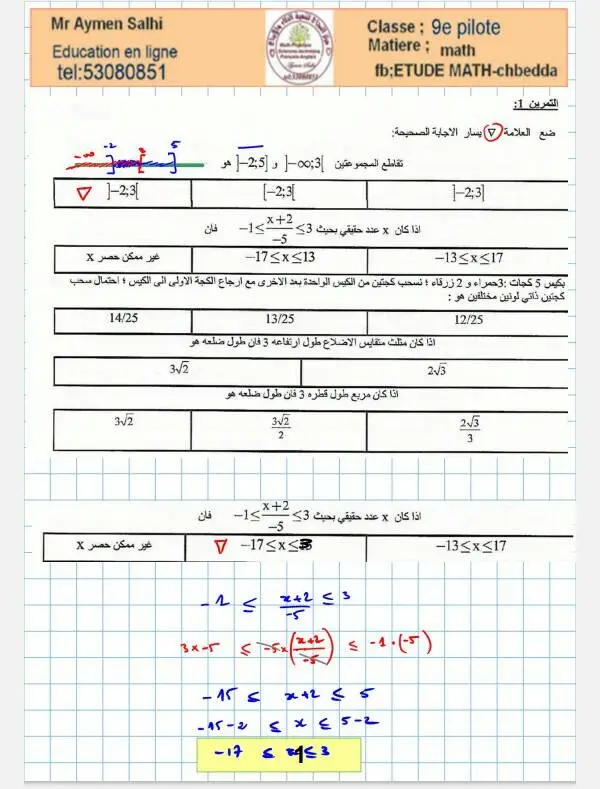 Mr Aymen Salhi
Education en ligne
tel:53080851
Classe ; 9e pilote
Matiere ; math
fb;ETUDE MATH-chbedda
التمرين 1:
ضع العلامة ▽ يسار الاجابة الصحيحة:
تقاطع المجموعتين ]−∞;3[ و ]−2;5] هو
−∞ −2 3 5
▽ ]−2;3[ [−2;3[ ]−2;3]
اذا كان x عدد حقيقي بحيث −1≤(x+2)/−5≤3 فان
غير ممكن حصر x −17≤x≤13 −13≤x≤17
بكيس 5 كجات :3حمراء و 2 زرقاء ؛ نسحب كجتين من الكيس الواحدة بعد الاخرى مع ارجاع الكجة الاولى الى الكيس ؛ احتمال سحب
كجتين ذاتي لونين مختلفين هو :
14/25 13/25 12/25
اذا كان مثلث متقايس الاضلاع طول ارتفاعه 3 فان طول ضلعه هو
3√2 2√3
اذا كان مربع طول قطره 3 فان طول ضلعه هو
3√2 3√2/2 2√3/3
اذا كان x عدد حقيقي بحيث −1≤(x+2)/−5≤3 فان
غير ممكن حصر x ▽ −17≤x≤3 −13≤x≤17
−1 ≤ (x+2)/−5 ≤ 3
3×−5 ≤ −5×((x+2)/−5) ≤ −1·(−5)
−15 ≤ x+2 ≤ 5
−15−2 ≤ x ≤ 5−2
−17 ≤ x ≤ 3
1